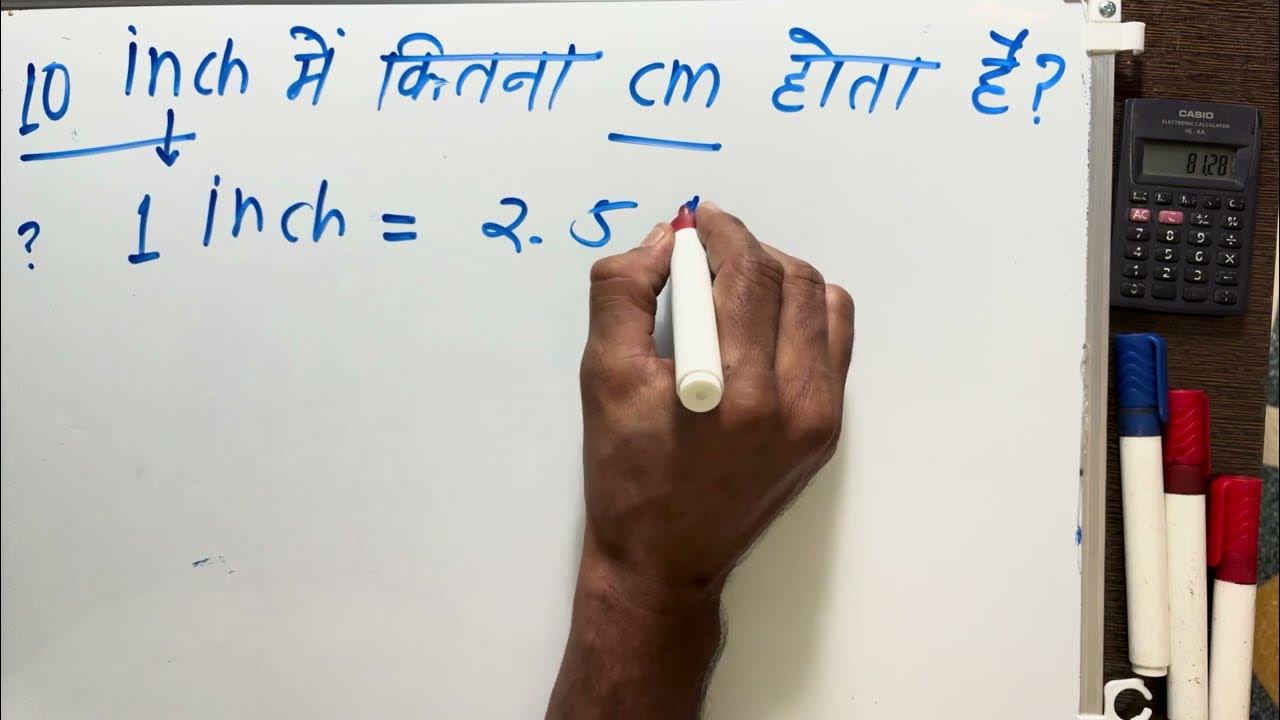 10 inch में कितना cm होता है?
? 1 inch = 2.5
CASIO
ELECTRONIC CALCULATOR
HL-4A
81.28
AC C
7 8 9
4 5 6 ×
1 2 3
0